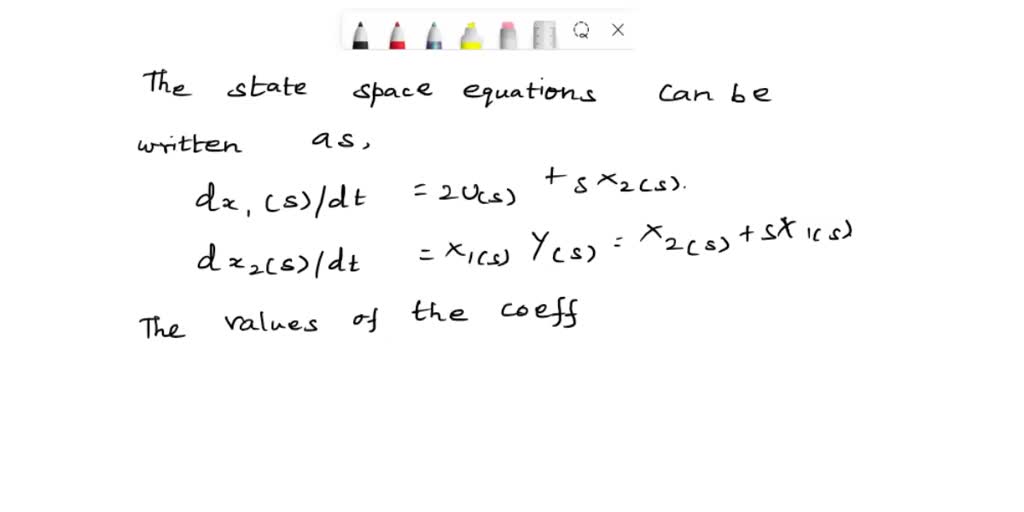 The state space equations can be
written as,
dx₁(s)/dt = 2U(s) + sX₂(s).
dx₂(s)/dt = X₁(s) Y(s) = X₂(s) + sX₁(s)
The values of the coeff